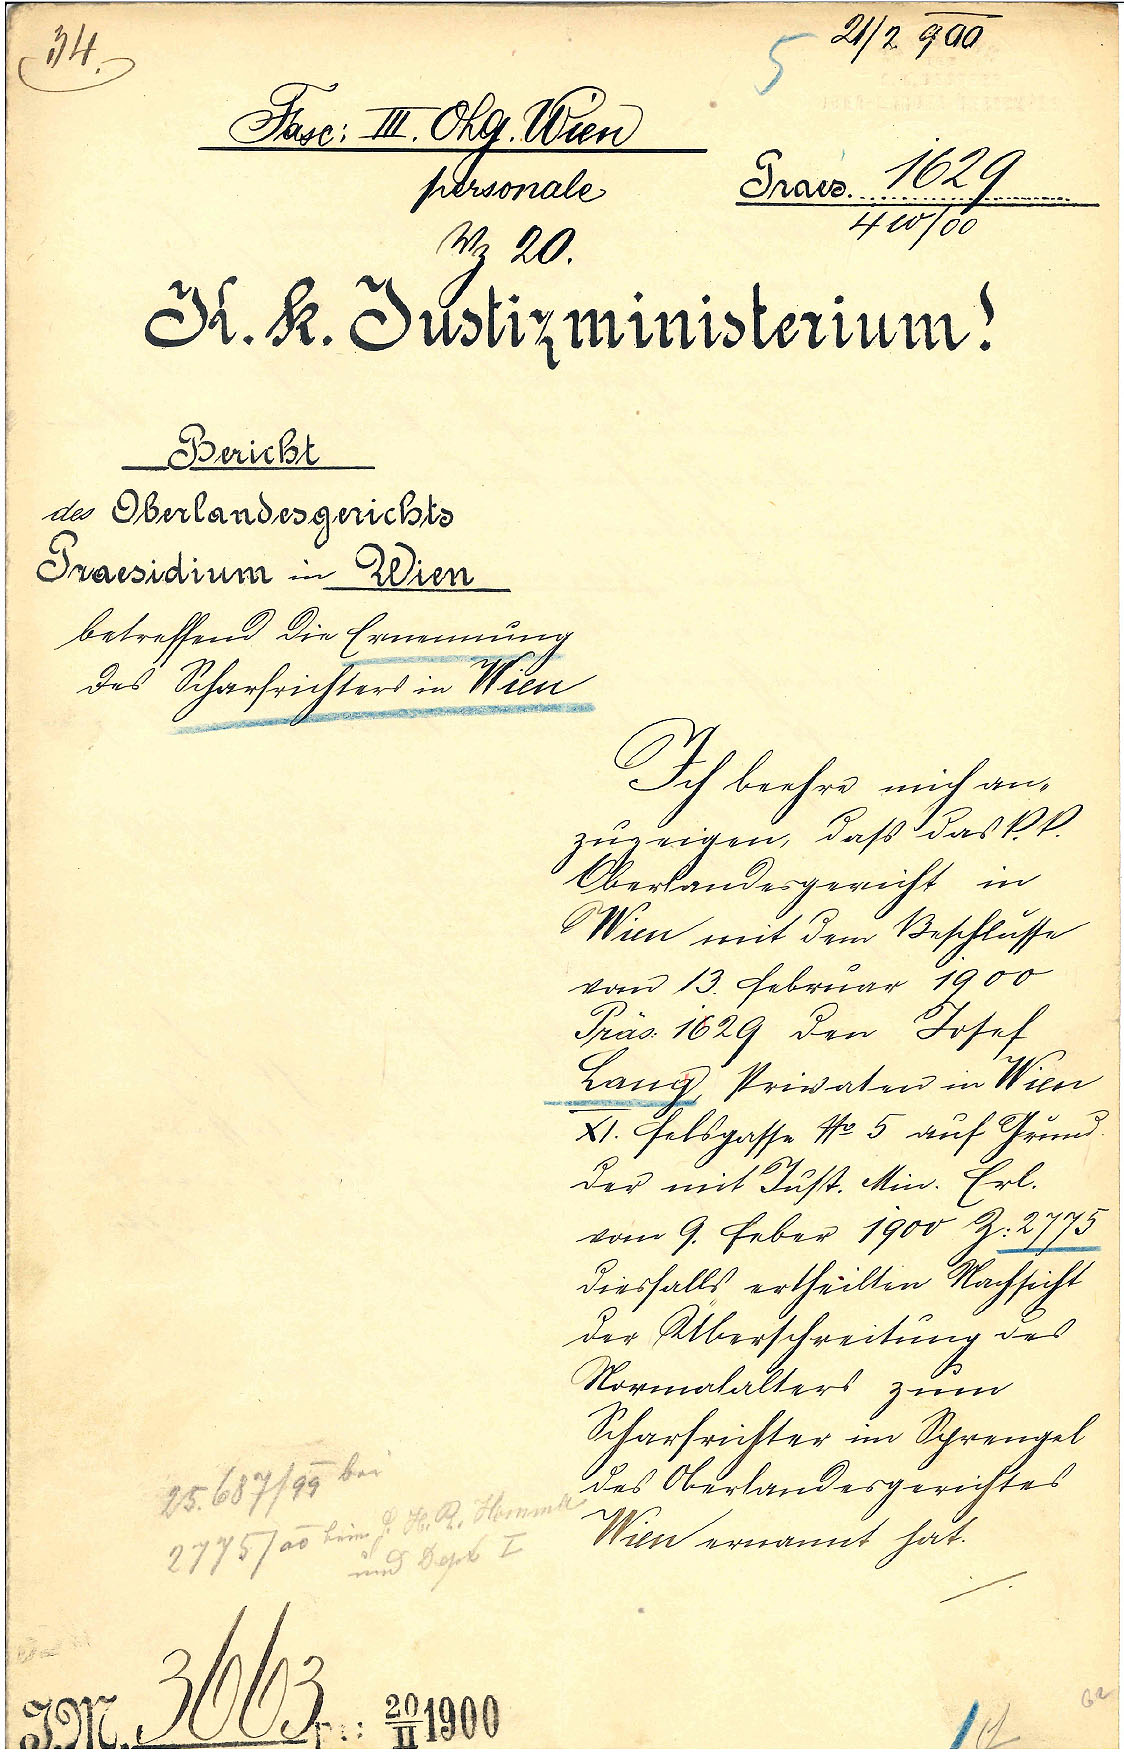 34.
5
21/2 900
Fasc: III. Ohg. Wien
personale
Praes. 1629
4 w/00
Vz 20.
K. k. Justizministerium!
Bericht
des Oberlandesgerichts
Praesidium in Wien
betreffend die Ernennung
des Scharfrichters in Wien
Ich beehre mich an-
zuzeigen, daß das k. k.
Oberlandesgericht in
Wien mit dem Beschlusse
vom 13. Februar 1900
Präs: 1629 den Josef
Lang, Privaten in Wien
XI. Felsgasse No 5 auf Grund
der mit Just. Min. Erl.
vom 9. Feber 1900 Z: 2775
diesfalls ertheilten Nachsicht
der Überschreitung des
Normalalters zum
Scharfrichter im Sprengel
des Oberlandesgerichtes
Wien ernannt hat.
25.687/99 bei
2775/00 beim H. R.
und Dept I
J.M. 3663 pr.: 20/II 1900